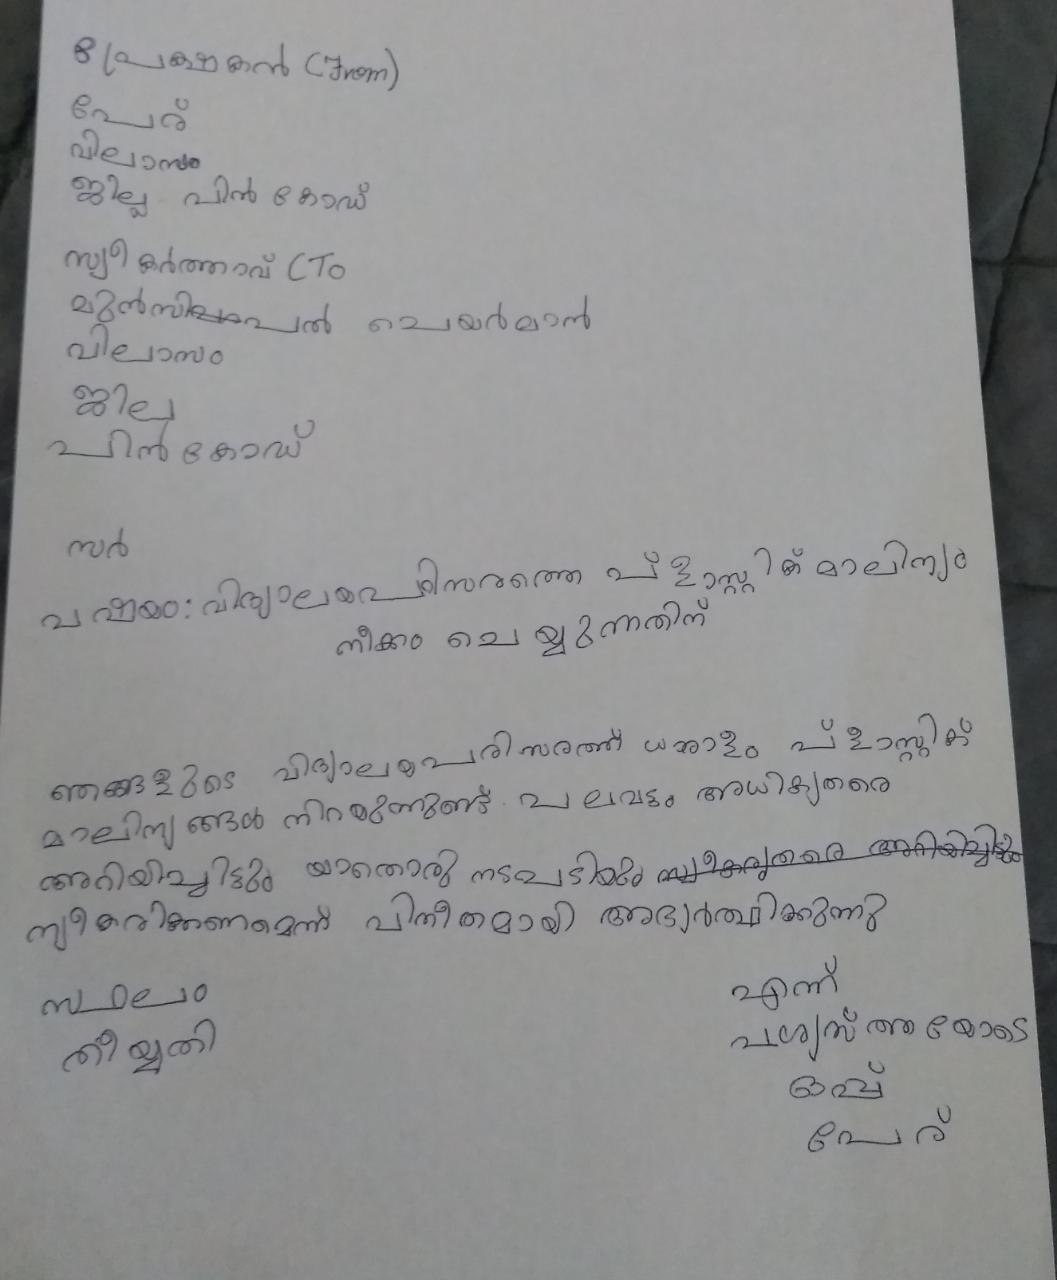 പ്രേക്ഷകൻ (From)
പേര്
വിലാസം
ജില്ല പിൻ കോഡ്
സ്വീകർത്താവ് (To
മുൻസിപ്പൽ ചെയർമാൻ
വിലാസം
ജില്ല
പിൻ കോഡ്
സർ
വിഷയം: വിദ്യാലയപരിസരത്തെ പ്ളാസ്റ്റിക് മാലിന്യം
നീക്കം ചെയ്യുന്നതിന്
ഞങ്ങളുടെ വിദ്യാലയപരിസരത്ത് ധാരാളം പ്ളാസ്റ്റിക്
മാലിന്യങ്ങൾ നിറയുന്നുണ്ട്. പലവട്ടം അധികൃതരെ
അറിയിച്ചിട്ടും യാതൊരു നടപടിയും
സ്വീകരിക്കണമെന്ന് വിനീതമായി അഭ്യർത്ഥിക്കുന്നു
സ്ഥലം
തീയ്യതി
എന്ന്
വിശ്വസ്തതയോടെ
ഒപ്പ്
പേര്